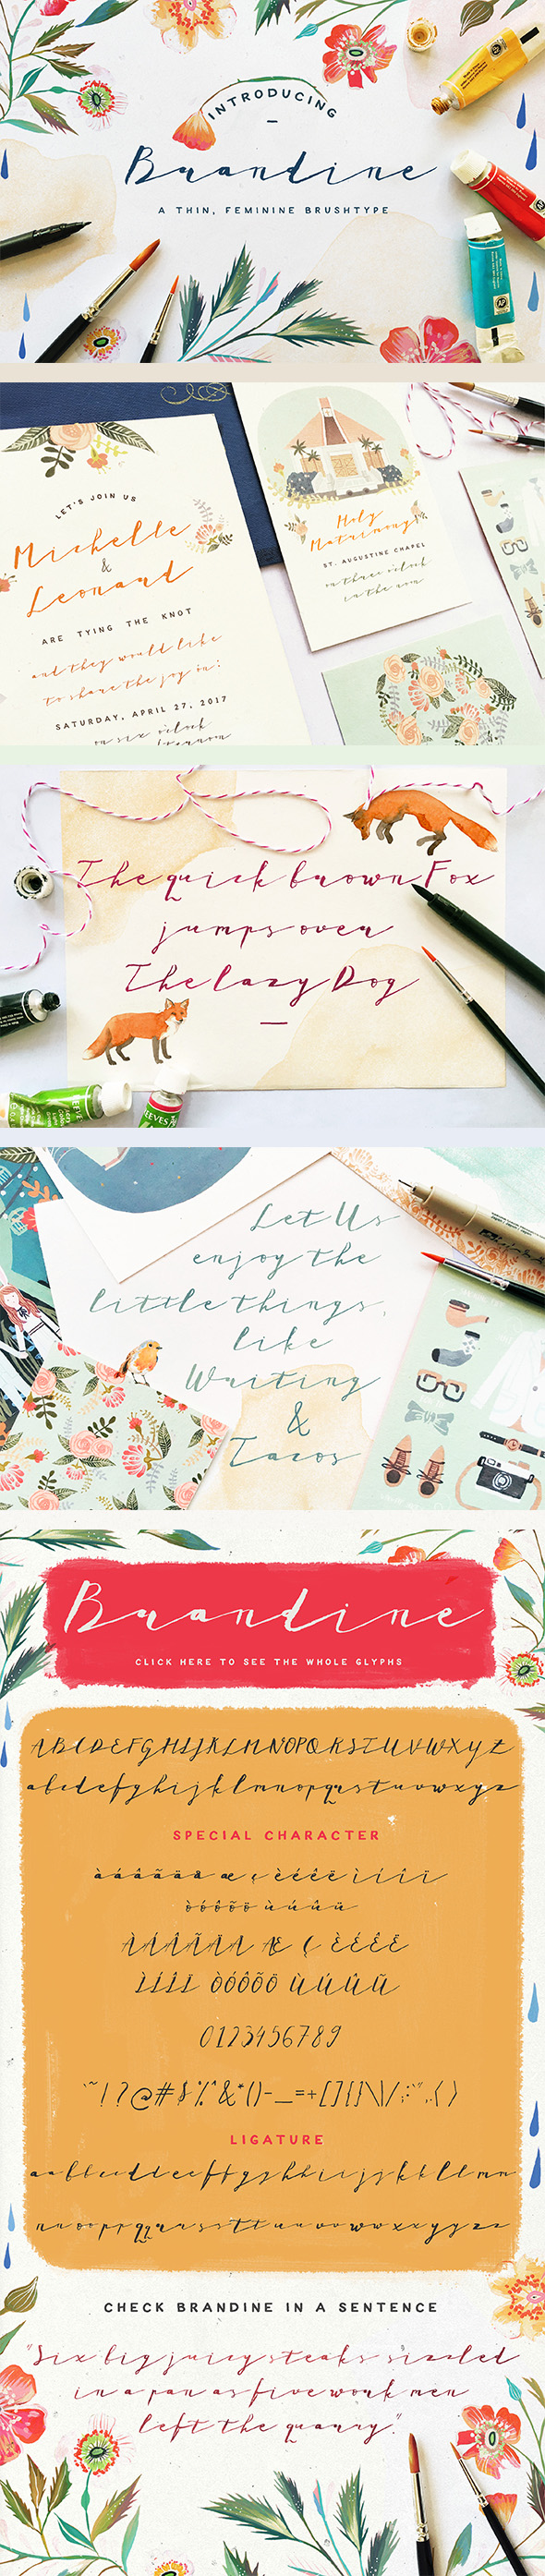 INTRODUCING
Brandine
A THIN, FEMININE BRUSHTYPE
LET'S JOIN US
Michelle
&
Leonard
ARE TYING THE KNOT
and they would like
to share the joy in:
SATURDAY, APRIL 27, 2017
on six o'clock
Holy
Matrimony
ST. AUGUSTINE CHAPEL
on three o'clock
in the noon
The quick brown Fox
jumps over
The lazy Dog
Let Us
enjoy the
little things,
like
Writing
&
Tacos
Brandine
CLICK HERE TO SEE THE WHOLE GLYPHS
ABCDEFGHIJKLMNOPQRSTUVWXYZ
abcdefghijklmnopqrstuvwxyz
SPECIAL CHARACTER
0123456789
LIGATURE
CHECK BRANDINE IN A SENTENCE
"Six big juicy steaks sizzled
in a pan as five work men
left the quarry".